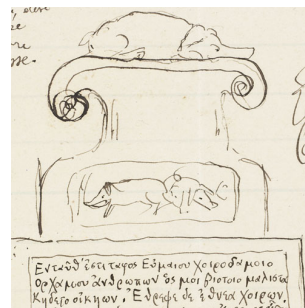 Ενταῦθ' ἐστι ταφος Εὐμαιου Χοιροδαμοιο
Ορχαμου ἀνθρωπων ὃς μοι βιοτοιο μαλιστα
Κηδετο οἰκηων. Εὐ τρεφε δε ἐθνεα χοιρων